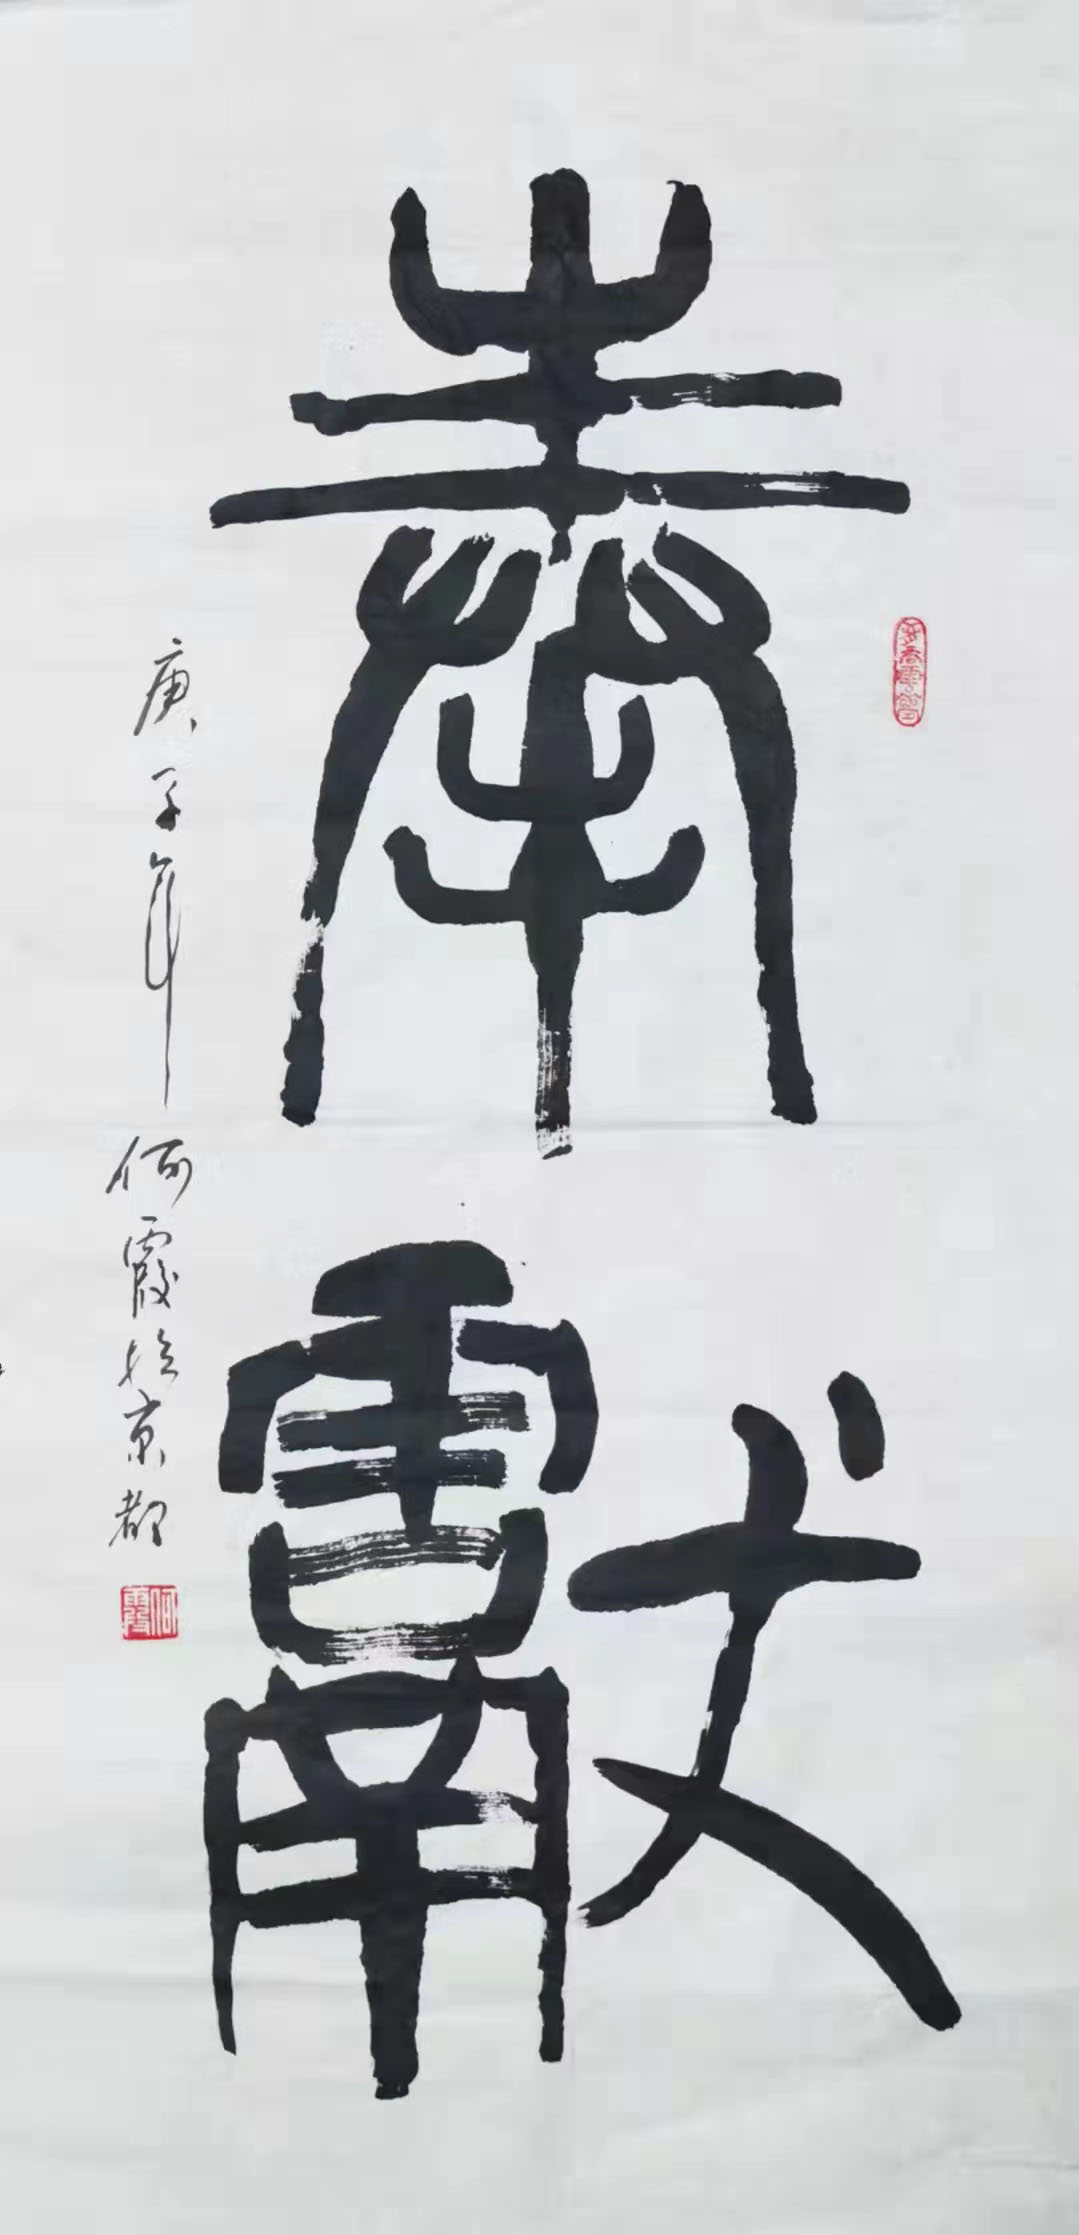 奉獻
庚子年 何霞於京都
何霞